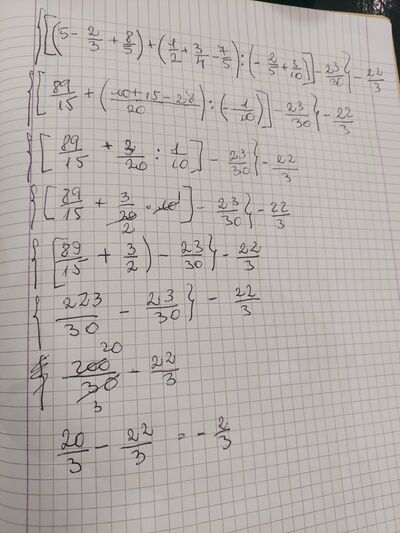 {[(5 - 2/3 + 8/5) + (1/2 + 3/4 - 7/5) : (- 2/5 + 3/10)] - 23/30} - 22/3
{[89/15 + (10 + 15 - 28/20) : (- 1/10)] - 23/30} - 22/3
{[89/15 + 3/20 : 1/10] - 23/30} - 22/3
{[89/15 + 3/20 2 · 10 1] - 23/30} - 22/3
{[89/15 + 3/2) - 23/30} - 22/3
{223/30 - 23/30} - 22/3
200 20/30 3 - 22/3
20/3 - 22/3 = - 2/3